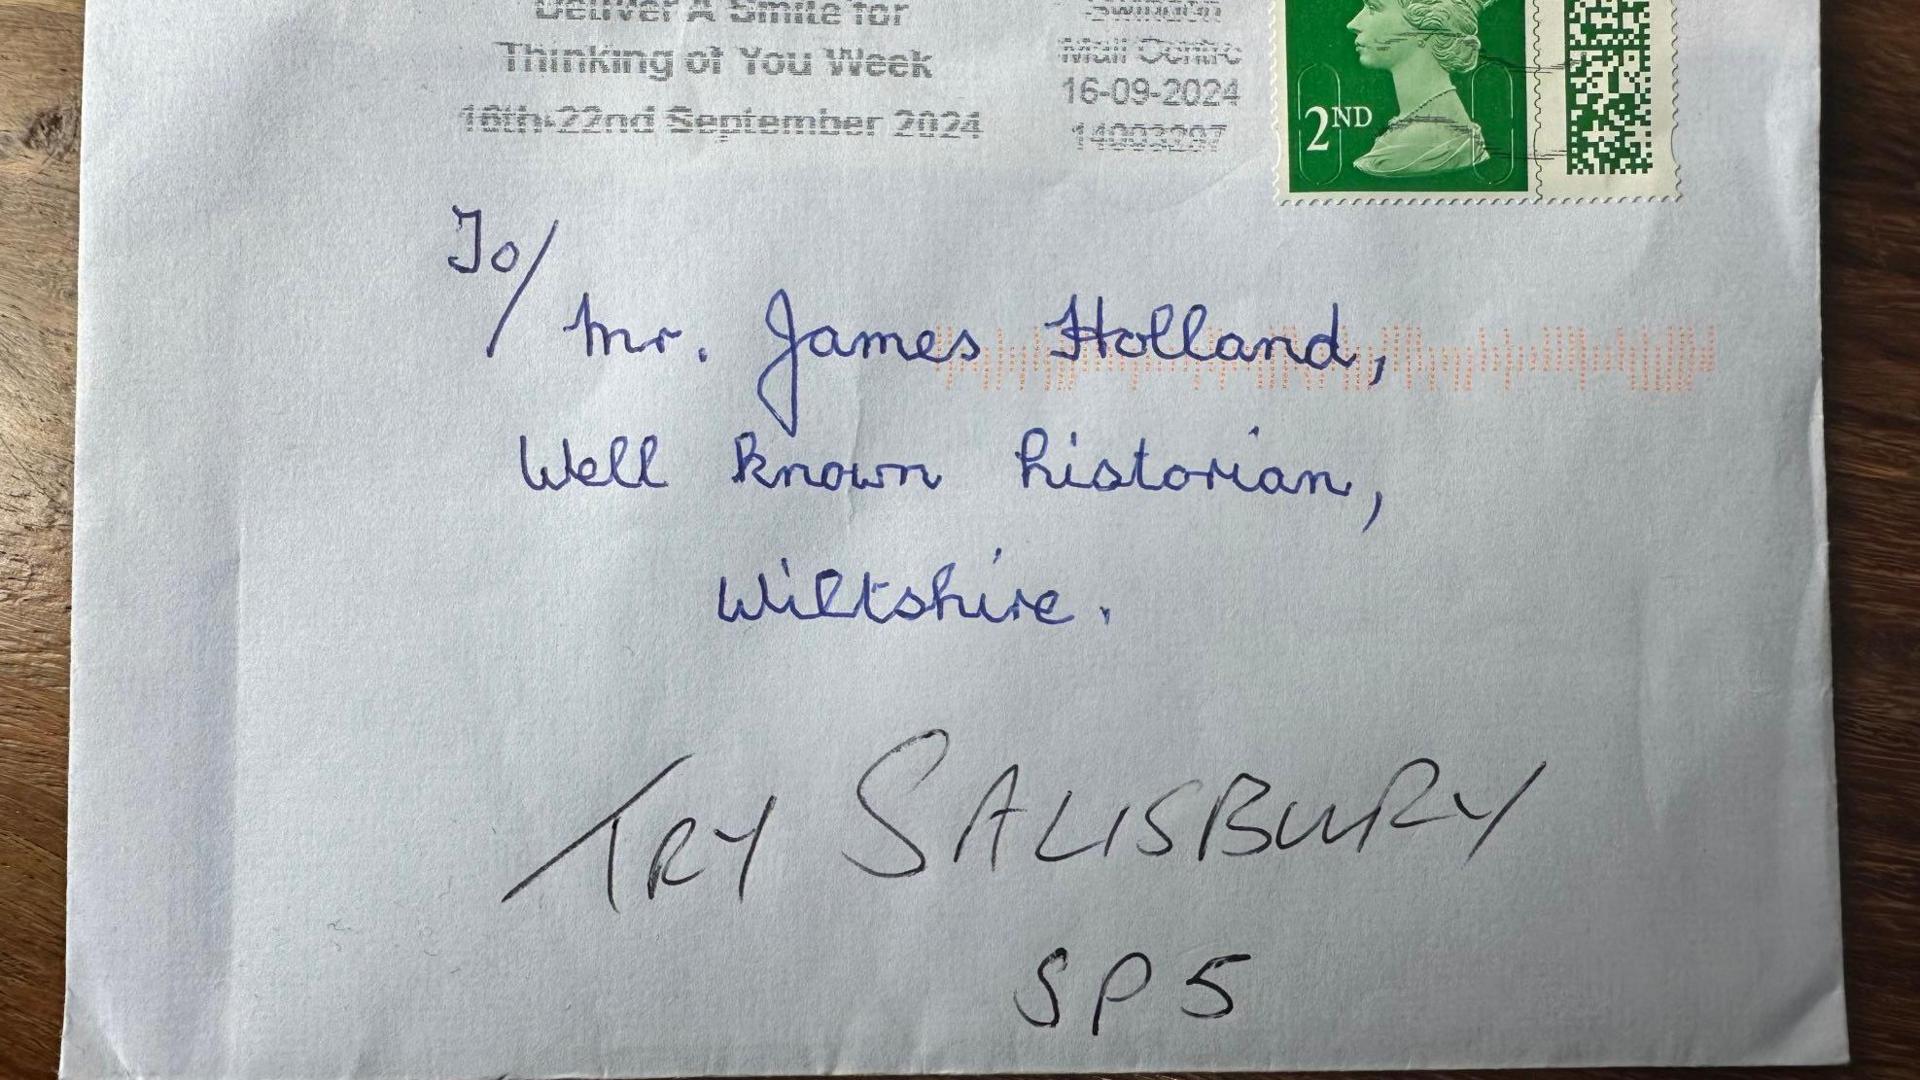 Deliver A Smile for
Thinking of You Week
16th-22nd September 2024
Swindon
Mail Centre
16-09-2024
14003207
2ND
To/
Mr. James Holland,
Well known historian,
Wiltshire.
TRY SALISBURY
SP5